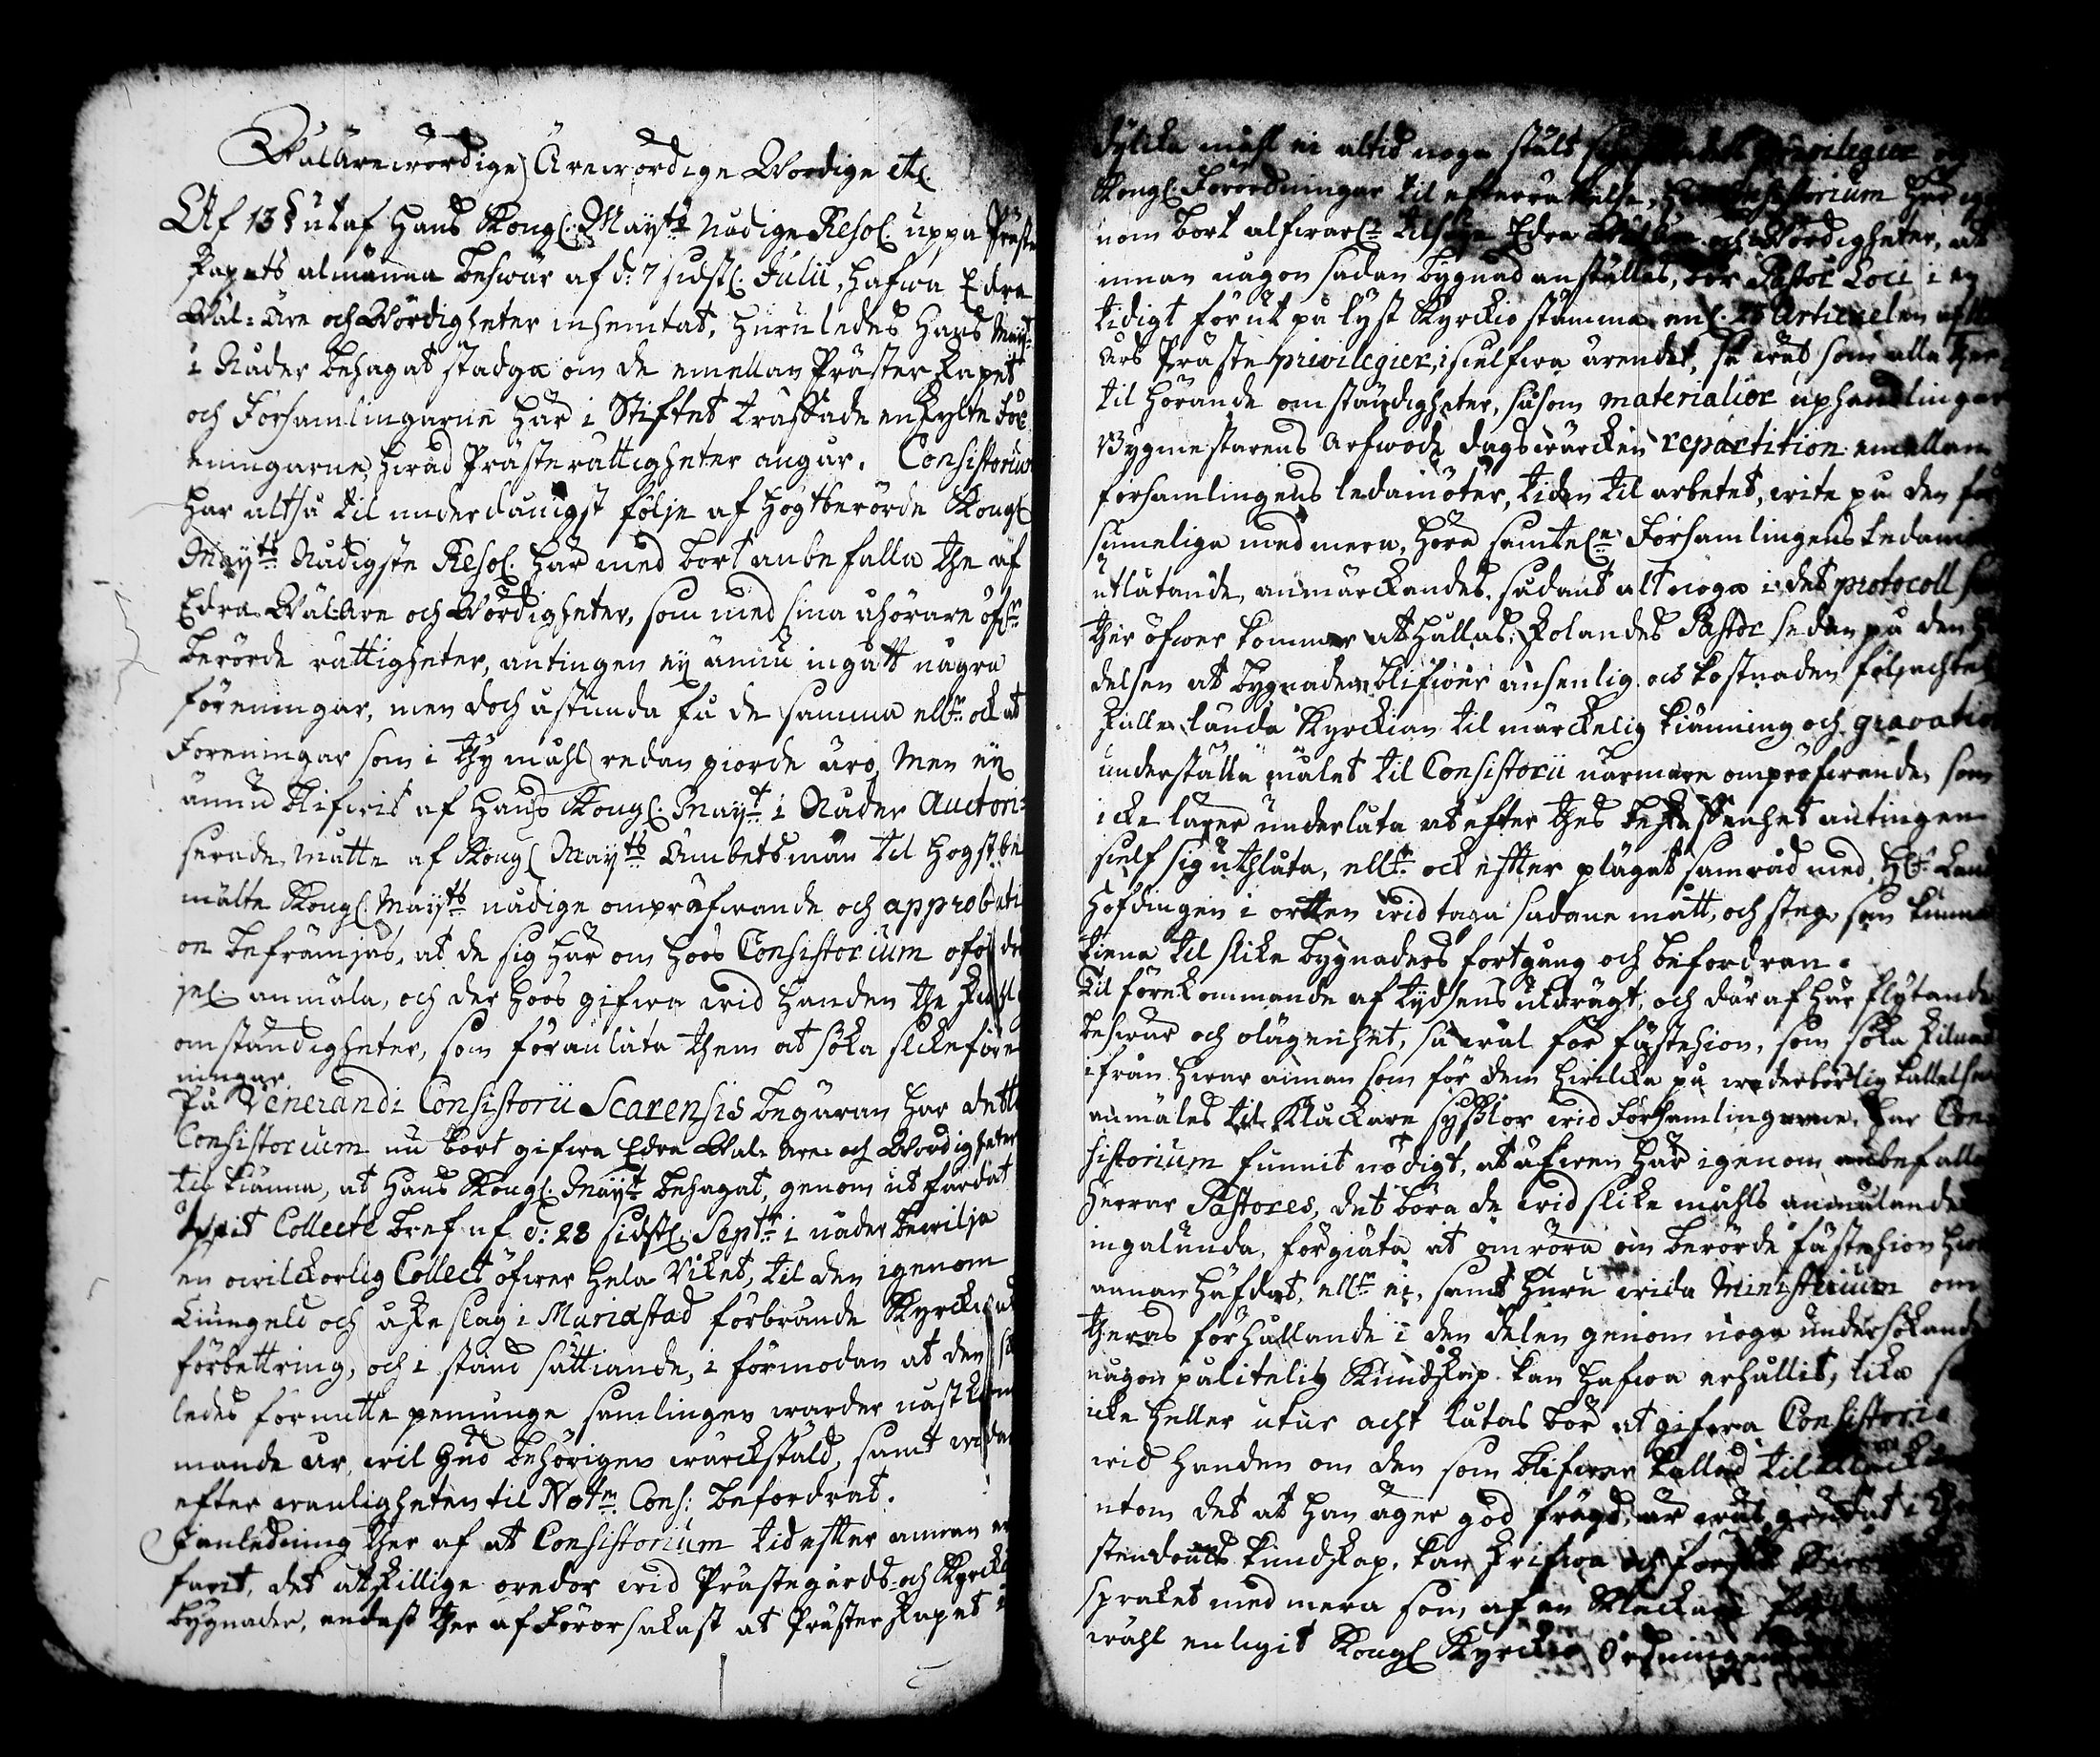 WälÄrewördige, Ärewördige Wördige etc.
Af 13 § utaf Hans Kongl. Maÿts Nådige Resol. uppå Präster
skapets almänna beswär af d: 7 sidstl. Julii, hafwa Edra
Wäl: Äre och Wördigheter inhemtat, huruledes Hans Maÿt
i Nåder behagat stadga om de emellan Prästerskapet
och Forsamlingarne här i Stiftet träffade enskylte För
eningarne, hwad Prästerättigheter angår. Consistorium
har altså til underdånigst följe af högtberörde Kongl
Maÿts Nådigste Resol. här med bort anbefalla the af
Edra Wäl: Äre och Wördigheter, som med sina åhörare ofwan
berörde rättigheter, antingen eÿ ännu ingått några
föreningar, men doch åstunda få de samma ellr ock at
Föreningar som i thÿ måhl redan giorde äro, Men eÿ
ännu blifwit af Hans Kongl. Maÿt i Nåder Auctori=
serade, måtte af Kongl Maÿts Ämbetsmän til högstbe
mälte Kongl. Maÿts nådige ompröfwande och approbati
on befrämjas, at de sig här om hoos Consistorium oför
jel. anmäla, och der hoos gifwa wid handen the skiähl
omständigheter, som föranlåta them at söka slike före
ningar.
På Venerandi Consistorii Scarensis begäran har dette
Consistorium nu bort gifwa Edra Wäl= Äre= och Wördigheter
til kiänna, at Hans Kongl. Maÿt behagat, genom ut färdat
öppit Collecte bref af d: 28 sidstl. Septr i nåder bewilja
en owilckorlig Collect öfwer hela Riket, til den igenom
Liungeld och åske slag i Mariæstad förbrände Kyrckians
förbettring, och i stånd sättiande, i förmodan at den så
ledes förmente penninge samlingen warder nästkom
mande år, wil Gud behörigen wärckstäld, samt
efter wanligheten til Notm Cons: befordrat.
I anledning ther af at Consistorium tid efter annan er
farit, det åtskillige oredor wid Prästegårds= och Kyrckio
bygnader, endast ther af förorsakast at Prästerskapet i
dylika måhl ei altid noga stält sig privilegier och
Kongl. Förordningar til efterrättelse, har Consistorium här ige
nom bort alfwarln tilsäga Edra och Wördigheter, at
innan någon sådan bygnad anställes, bör Pastor Loci i en
tidigt förut på lyst Kyrckio stämma, enl. 25 Articuelen af
Års Präste privilegier, i sielfwa ärendet, så wäl, som alla ther
til hörande omständigheter, såsom materialier uphandlingar
Bygmestarens Arfwode dagswärcken repartition emellan
församlingens ledamöter, tiden til arbetet, wite på den för
sumeliga med mera, höra samteln Församlingens Ledamöters
utlåtande, anmärckandes sådant alt noga i det protocoll som
ther öfwer kommer at hållas; skolandes Pastor sedan på den hän
delsen at bygnaden blifwer ansenlig och kostnaden följachtel.
skulle lända Kyrckian til märckelig kiänning och gravation
underställa målet til Consistorii närmare ompröfwande, som
icke lärer underlåta at efter thes beskaffenhet antingen
sielf sig uthlåta, ellr ock effter plägat samråd med, Hr Lands
Höfdingen i ortten widtaga sådane mått, och steg, som kunna
tiena til slike bygnaders fortgång och befordran.
Til förekommande af tydsens utdrägt, och där af här flytande
beswär och olägenhet, så wäl för fästehion, som söka skilnad
ifrån hwar annan som för dem hwilcka på wederbörlig kallelse
anmäles til Klåckare sysslor wid Församlingarne, har Con=
sistorium funnit nödigt, at äfwen här igenom anbefalla
Herrar Pastores, det böra de wid slike måhls anmälande
ingalunda, förgiäta at omröra om berörde fästehion hwar
annan häfdat, ellr ei, samt huru wida Ministerium om
theras förhållande i den delen genom noga undersökande
någon pålitelig Kundskap kan hafwa erhållit, lika så
icke heller utur acht låtas bör at gifwa Consistorio
wid handen om den som blifwer kallad til Klåckare
utom det at han äger god frägd, är wäl grundat i
stendomens kundskap, kan skrifwa och
språket med mera som af en Klåckare
wähl enligit Kongl Kyrckio Ordningen